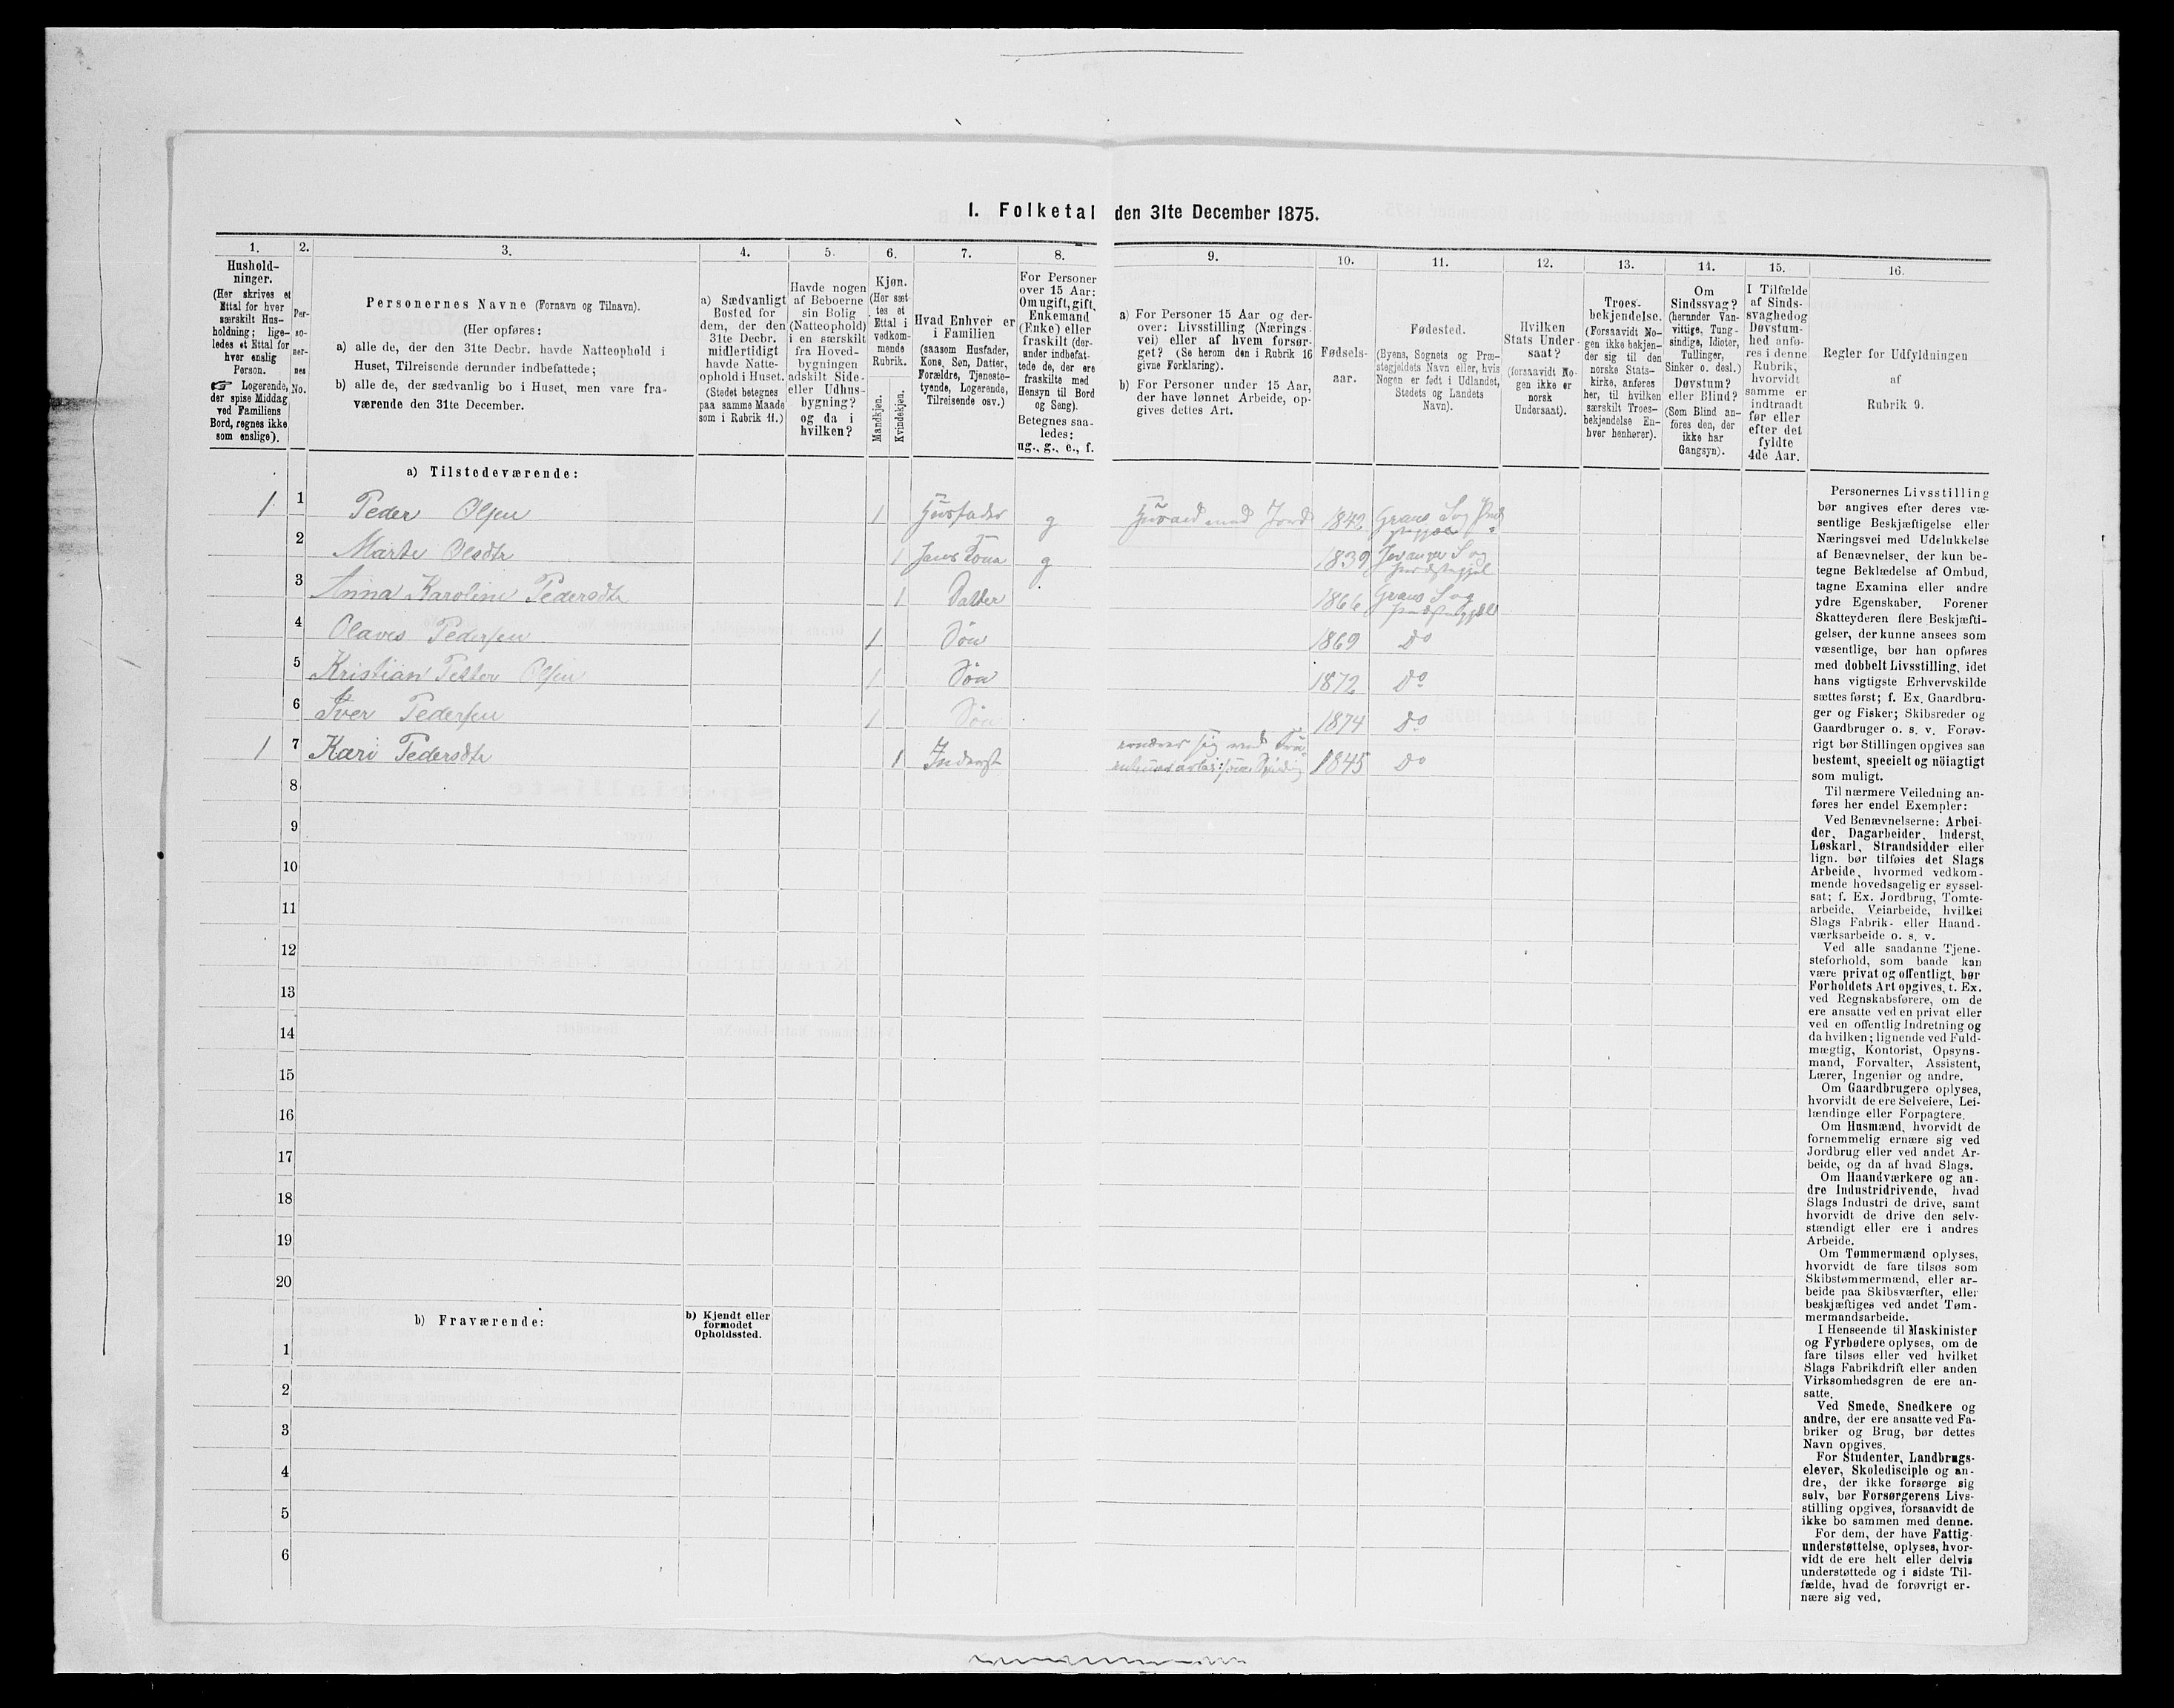 I. Folketal den 31te December 1875.
1.
Hushold-
ninger.
(Her skrives et
Ettal for hver
særskilt Hus-
holdning; lige-
ledes et Ettal for
hver enslig
Person.
☞ Logerende,
der spise Middag
ved Familiens
Bord, regnes ikke
som enslige).
2.
Per-
so-
ner-
nes
No.
3.
Personernes Navne (Fornavn og Tilnavn).
(Her opføres:
a) alle de, der den 31te Decbr. havde Natteophold i
Huset, Tilreisende derunder indbefattede;
b) alle de, der sædvanlig bo i Huset, men vare fra-
værende den 31te December.
4.
a) Sædvanligt
Bosted for
dem, der den
31te Decbr.
midlertidigt
havde Natte-
ophold i Huset.
(Stedet betegnes
paa samme Maade
som i Rubrik 11.)
5.
Havde nogen
af Beboerne
sin Bolig
(Natteophold)
i en særskilt
fra Hoved-
bygningen
adskilt Side-
eller Udhus-
bygning?
og da i
hvilken?
6.
Kjøn.
(Her sæt-
tes et
Ettal i
vedkom-
mende
Rubrik.
Mandkjøn.
Kvindekjøn.
7.
Hvad Enhver er
i Familien
(saasom Husfader,
Kone, Søn, Datter,
Forældre, Tjeneste-
tyende, Logerende,
Tilreisende osv.)
8.
For Personer
over 15 Aar:
Om ugift, gift,
Enkemand
(Enke) eller
fraskilt (der-
under indbefat-
tede de, der ere
fraskilte med
Hensyn til Bord
og Seng).
Betegnes saa-
ledes:
ug., g., e., f.
9.
a) For Personer 15 Aar og der-
over: Livsstilling (Nærings-
vei) eller af hvem forsør-
get? (Se herom den i Rubrik 16
givne Forklaring).
b) For Personer under 15 Aar,
der have lønnet Arbeide, op-
gives dettes Art.
10.
Fødsels-
aar.
11.
Fødested.
(Byens, Sognets og Præ-
stegjeldets Navn eller, hvis
Nogen er født i Udlandet,
Stedets og Landets
Navn).
12.
Hvilken
Stats Under-
saat?
(forsaavidt No-
gen ikke er
norsk
Undersaat).
13.
Troes-
bekjendelse.
(Forsaavidt No-
gen ikke bekjen-
der sig til den
norske Stats-
kirke, anføres
her, til hvilken
særskilt Troes-
bekjendelse En-
hver henhører).
14.
Om
Sindssvag?
(herunder Van-
vittige, Tung-
sindige, Idioter,
Tullinger,
Sinker o. desl.)
Døvstum?
eller Blind?
(Som Blind an-
føres den, der
ikke har
Gangsyn).
15.
I Tilfælde
af Sinds-
svaghed og
Døvstum-
hed anfø-
res i denne
Rubrik,
hvorvidt
samme er
indtraadt
før eller
efter det
fyldte
4de Aar.
16.
Regler for Udfyldningen
af
Rubrik 9.
a) Tilstedeværende:
1 1 Peder Olsen 1 Husfader g med Jord 1842 Grans Sog
2 Marte Olsdtr 1 g 1839 Sog
3 Anna Karoline Pedersdtr 1 Datter 1866 Grans Sog
4 Olaves Pedersen 1 Søn 1869 Do
5 Kristian Petter Olsen 1 Søn 1872 Do
6 Iver Pedersen 1 Søn 1874 Do
1 7 Kari Pedersdtr 1 Inderst ernærer sig med 1845 Do
8
9
10
11
12
13
14
15
16
17
18
19
20
b) Fraværende:
b) Kjendt eller
formodet
Opholdssted.
1
2
3
4
5
6
Personernes Livsstilling
bør angives efter deres væ-
sentlige Beskjæftigelse eller
Næringsvei med Udelukkelse
af Benævnelser, der kun be-
tegne Beklædelse af Ombud,
tagne Examina eller andre
ydre Egenskaber. Forener
Skatteyderen flere Beskjæfti-
gelser, der kunne ansees som
væsentlige, bør han opføres
med dobbelt Livsstilling, idet
hans vigtigste Erhvervskilde
sættes først; f. Ex. Gaardbru-
ger og Fisker; Skibsreder og
Gaardbruger o. s. v. Forøv-
rigt bør Stillingen opgives saa
bestemt, specielt og nöiagtigt
som muligt.
Til nærmere Veiledning an-
føres her endel Exempler:
Ved Benævnelserne: Arbei-
der, Dagarbeider, Inderst,
Løskarl, Strandsidder eller
lign. bør tilføies det Slags
Arbeide, hvormed vedkom-
mende hovedsagelig er syssel-
sat; f. Ex. Jordbrug, Tomte-
arbeide, Veiarbeide, hvilket
Slags Fabrik- eller Haand-
værksarbeide o. s. v.
Ved alle saadanne Tjene-
steforhold, som baade kan
være privat og offentligt, bør
Forholdets Art opgives, t. Ex.
ved Regnskabsførere, om de
ere ansatte ved en privat eller
ved en offentlig Indretning og
da hvilken; lignende ved Fuld-
mægtig, Kontorist, Opsyns-
mand, Forvalter, Assistent,
Lærer, Ingeniør og andre.
Om Gaardbrugere oplyses,
hvorvidt de ere Selveiere, Lei-
lændinge eller Forpagtere.
Om Husmænd, hvorvidt de
fornemmelig ernære sig ved
Jordbrug eller ved andet Ar-
beide, og da af hvad Slags.
Om Haandværkere og an-
dre Industridrivende, hvad
Slags Industri de drive, samt
hvorvidt de drive den selv-
stændigt eller ere i andres
Arbeide.
Om Tømmermænd oplyses,
hvorvidt de fare tilsøs som
Skibstømmermænd, eller ar-
beide paa Skibsværfter, eller
beskjæftiges ved andet Tøm-
mermandsarbeide.
I Henseende til Maskinister
og Fyrbødere oplyses, om de
fare tilsøs eller ved hvilket
Slags Fabrikdrift eller anden
Virksomhedsgren de ere an-
satte.
Ved Smede, Snedkere og
andre, der ere ansatte ved Fa-
briker og Brug, bør dettes
Navn opgives.
For Studenter, Landbrugs-
elever, Skoledisciple og an-
dre, der ikke forsørge sig
selv, bør Forsørgerens Livs-
stilling opgives, forsaavidt de
ikke bo sammen med denne.
For dem, der have Fattig-
understøttelse, oplyses, hvor-
vidt de ere helt eller delvis
understøttede og i sidste Til-
fælde, hvad de forøvrigt er-
nære sig ved.